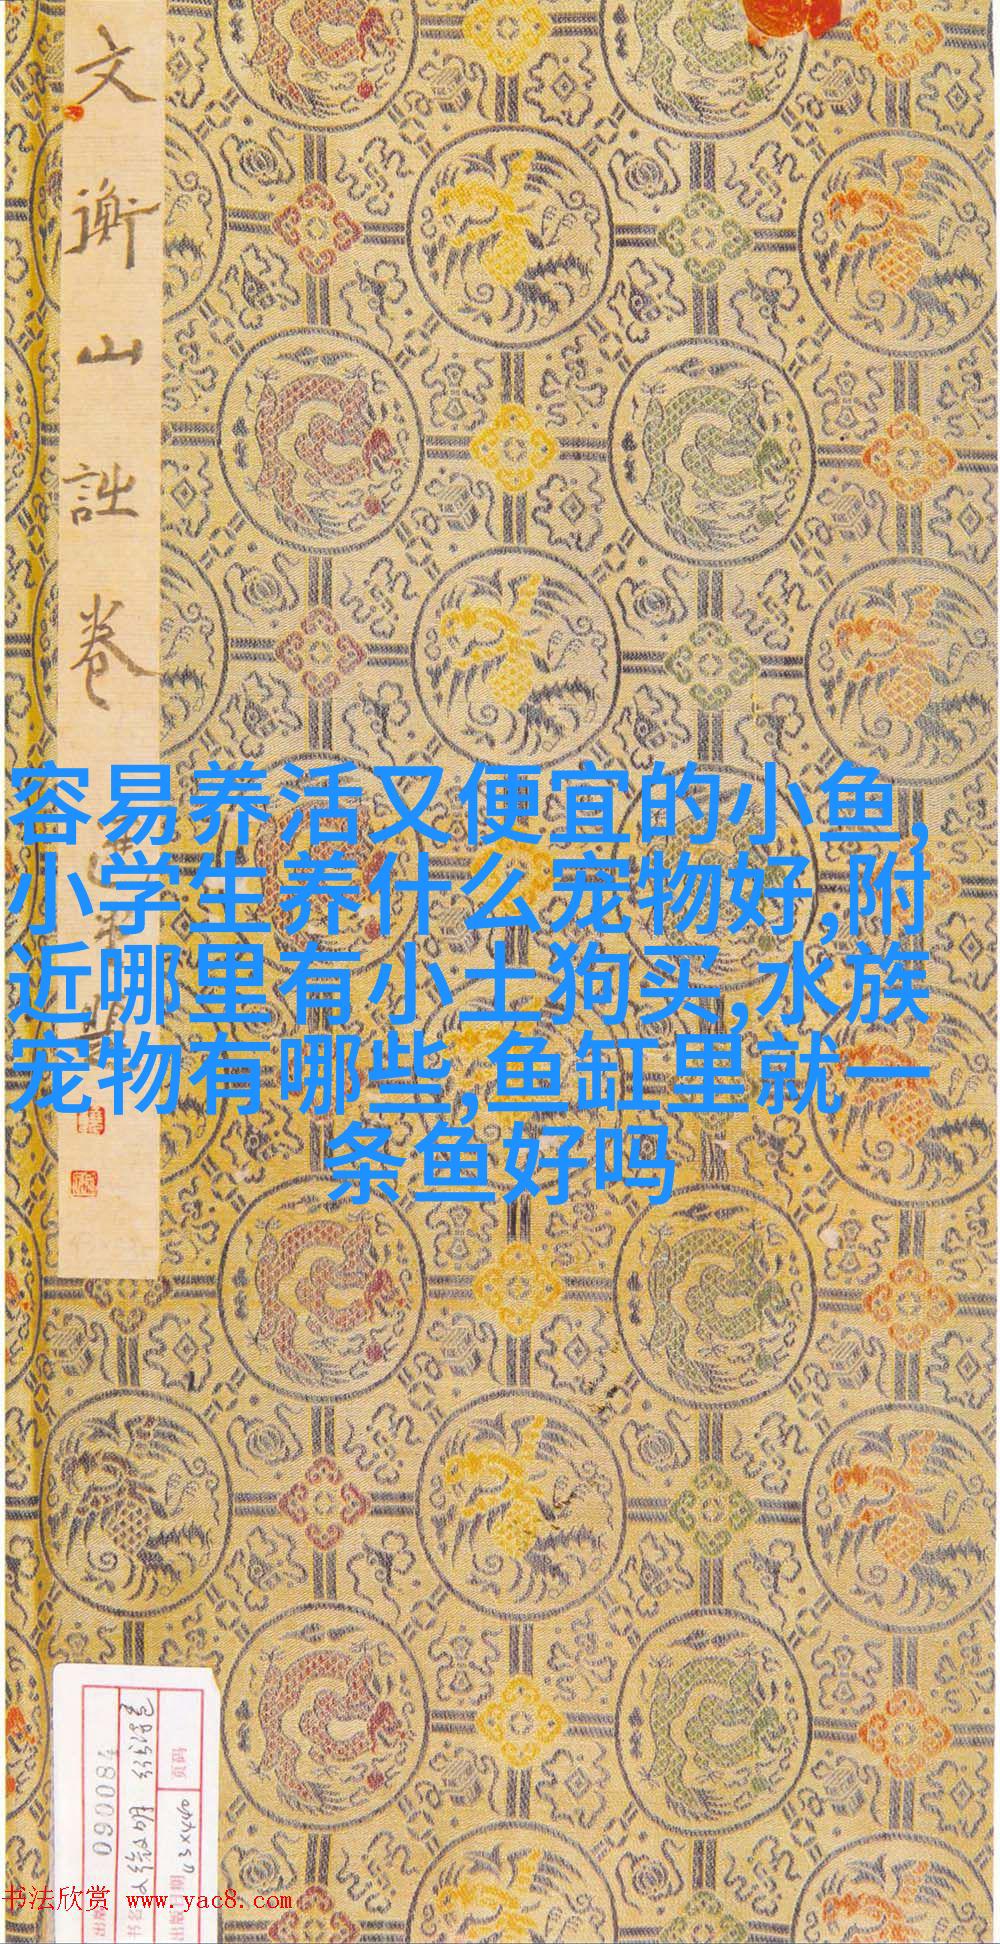 文衡山詩卷
容易养活又便宜的小鱼,
小学生养什么宠物好,附
近哪里有小土狗买,水族
宠物有哪些,鱼缸里就一
条鱼好吗
090084
页码
43x440
书法欣赏 www.yac8.com